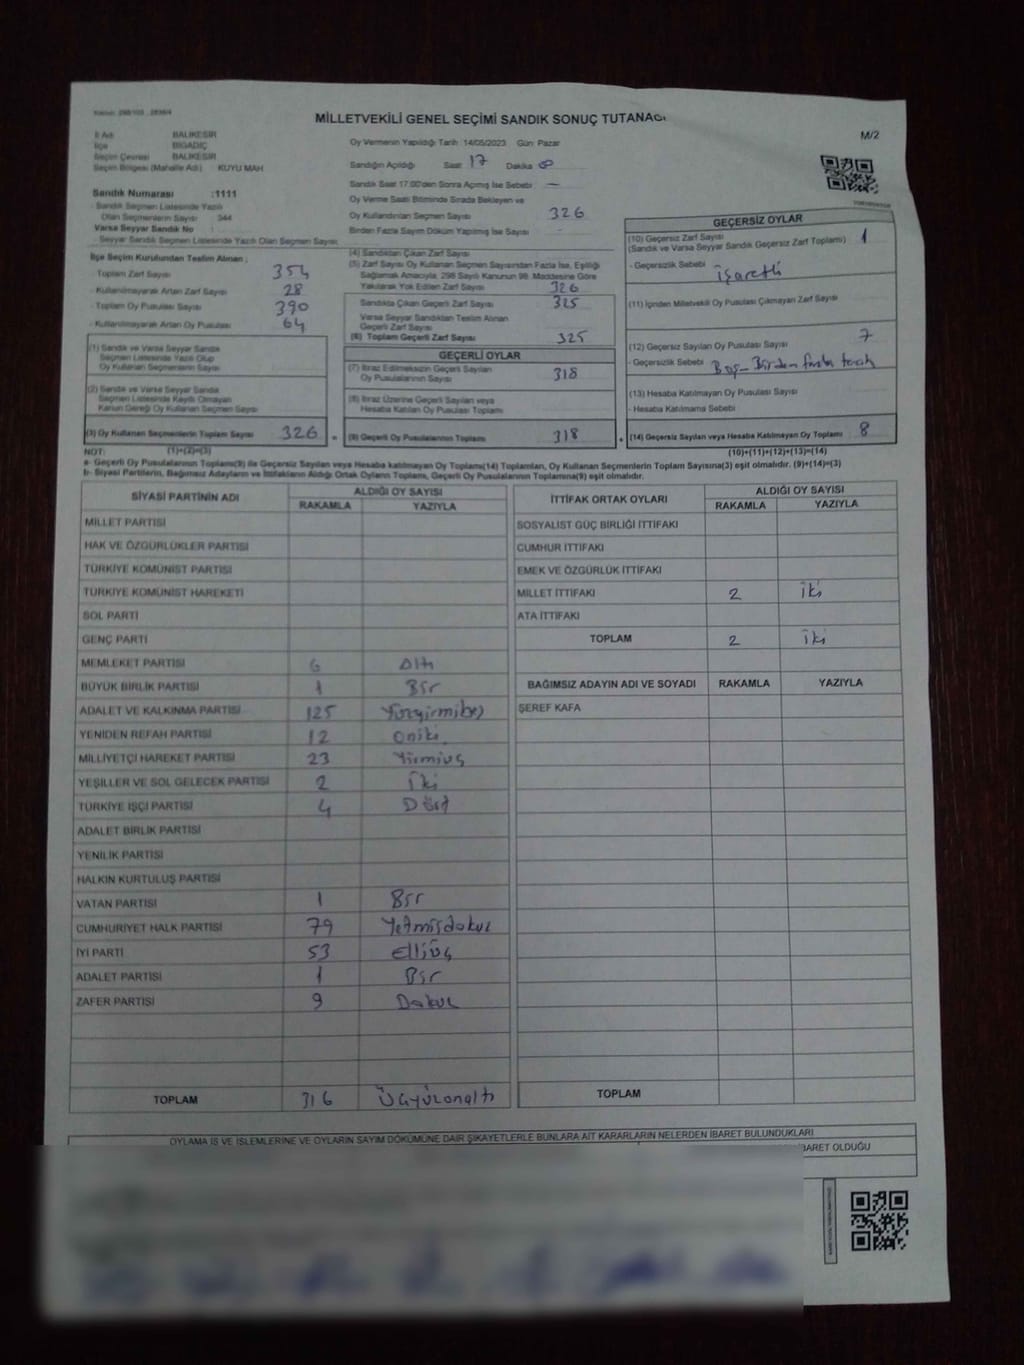 MİLLETVEKİLİ GENEL SEÇİMİ SANDIK SONUÇ TUTANAĞI
M/2
İl Adı BALIKESİR
İlçe BİGADİÇ
Seçim Çevresi BALIKESİR
Seçim Bölgesi (Mahalle Adı) KUYU MAH
Sandık Numarası :1111
- Sandık Seçmen Listesinde Yazılı
Olan Seçmenlerin Sayısı 344
Varsa Seyyar Sandık No :
- Seyyar Sandık Seçmen Listesinde Yazılı Olan Seçmen Sayısı
İlçe Seçim Kurulundan Teslim Alınan ;
- Toplam Zarf Sayısı 354
- Kullanılmayarak Artan Zarf Sayısı 28
- Toplam Oy Pusulası Sayısı 390
- Kullanılmayarak Artan Oy Pusulası 64
(1) Sandık ve Varsa Seyyar Sandık
Seçmen Listesinde Yazılı Olup
Oy Kullanan Seçmenlerin Sayısı
(2) Sandık ve Varsa Seyyar Sandık
Seçmen Listesinde Kayıtlı Olmayan
Kanun Gereği Oy Kullanan Seçmen Sayısı
(3) Oy Kullanan Seçmenlerin Toplam Sayısı 326
Oy Vermenin Yapıldığı Tarih 14/05/2023 Gün: Pazar
Sandığın Açıldığı Saat 17 Dakika
Sandık Saat 17:00'den Sonra Açılmış İse Sebebi —
Oy Verme Saati Bitiminde Sırada Bekleyen ve
Oy Kullandırılan Seçmen Sayısı 326
Birden Fazla Sayım Döküm Yapılmış İse Sayısı -
(4) Sandıktan Çıkan Zarf Sayısı
(5) Zarf Sayısı Oy Kullanan Seçmen Sayısından Fazla İse, Eşitliği
Sağlamak Amacıyla, 298 Sayılı Kanunun 98. Maddesine Göre
Yakılarak Yok Edilen Zarf Sayısı 326
Sandıkta Çıkan Geçerli Zarf Sayısı 325
Varsa Seyyar Sandıktan Teslim Alınan
Geçerli Zarf Sayısı
(6) Toplam Geçerli Zarf Sayısı 325
GEÇERLİ OYLAR
(7) İtiraz Edilmeksizin Geçerli Sayılan
Oy Pusulalarının Sayısı 318
(8) İtiraz Üzerine Geçerli Sayılan veya
Hesaba Katılan Oy Pusulası Toplamı
(9) Geçerli Oy Pusulalarının Toplamı 318
GEÇERSİZ OYLAR
(10) Geçersiz Zarf Sayısı
(Sandık ve Varsa Seyyar Sandık Geçersiz Zarf Toplamı) 1
- Geçersizlik Sebebi işaretli
(11) İçinden Milletvekili Oy Pusulası Çıkmayan Zarf Sayısı
(12) Geçersiz Sayılan Oy Pusulası Sayısı 7
- Geçersizlik Sebebi Boş- Birden fazla tercih
(13) Hesaba Katılmayan Oy Pusulası Sayısı
- Hesaba Katılmama Sebebi
(14) Geçersiz Sayılan veya Hesaba Katılmayan Oy Toplamı 8
NOT: (1)+(2)=(3) (10)+(11)+(12)+(13)=(14)
a- Geçerli Oy Pusulalarının Toplamı(9) ile Geçersiz Sayılan veya Hesaba katılmayan Oy Toplamı(14) Toplamları, Oy Kullanan Seçmenlerin Toplam Sayısına(3) eşit olmalıdır. (9)+(14)=(3)
b- Siyasi Partilerin, Bağımsız Adayların ve İttifakların Aldığı Ortak Oyların Toplamı, Geçerli Oy Pusulalarının Toplamına(9) eşit olmalıdır.
SİYASİ PARTİNİN ADI ALDIĞI OY SAYISI
RAKAMLA YAZIYLA
MİLLET PARTİSİ
HAK VE ÖZGÜRLÜKLER PARTİSİ
TÜRKİYE KOMÜNİST PARTİSİ
TÜRKİYE KOMÜNİST HAREKETİ
SOL PARTİ
GENÇ PARTİ
MEMLEKET PARTİSİ 6 Altı
BÜYÜK BİRLİK PARTİSİ 1 Bir
ADALET VE KALKINMA PARTİSİ 125 Yüzyirmibeş
YENİDEN REFAH PARTİSİ 12 oniki
MİLLİYETÇİ HAREKET PARTİSİ 23 Yirmiüç
YEŞİLLER VE SOL GELECEK PARTİSİ 2 İki
TÜRKİYE İŞÇİ PARTİSİ 4 Dört
ADALET BİRLİK PARTİSİ
YENİLİK PARTİSİ
HALKIN KURTULUŞ PARTİSİ
VATAN PARTİSİ 1 Bir
CUMHURİYET HALK PARTİSİ 79 Yetmişdokuz
İYİ PARTİ 53 elliüç
ADALET PARTİSİ 1 Bir
ZAFER PARTİSİ 9 Dokuz
TOPLAM 316 Üçyüzonaltı
İTTİFAK ORTAK OYLARI ALDIĞI OY SAYISI
RAKAMLA YAZIYLA
SOSYALİST GÜÇ BİRLİĞİ İTTİFAKI
CUMHUR İTTİFAKI
EMEK VE ÖZGÜRLÜK İTTİFAKI
MİLLET İTTİFAKI 2 İki
ATA İTTİFAKI
TOPLAM 2 İki
BAĞIMSIZ ADAYIN ADI VE SOYADI RAKAMLA YAZIYLA
ŞEREF KAFA
TOPLAM
OYLAMA İŞ VE İŞLEMLERİNE VE OYLARIN SAYIM DÖKÜMÜNE DAİR ŞİKAYETLERLE BUNLARA AİT KARARLARIN NELERDEN İBARET BULUNDUKLARI
İBARET OLDUĞU